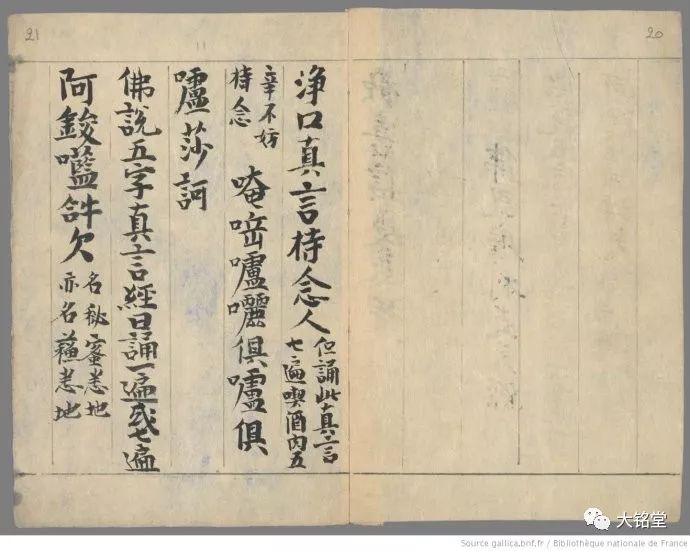 20
21
11
淨口真言持念人
但誦此真言
七遍喫酒肉五
辛不妨
持念
唵嚧囇俱嚧俱
嚧莎訶
佛說五字真言經日誦一遍或七遍
阿鋑囕欠
名秘蜜悉地
亦名蘓悉地
大铭堂
Source gallica.bnf.fr / Bibliothèque nationale de France